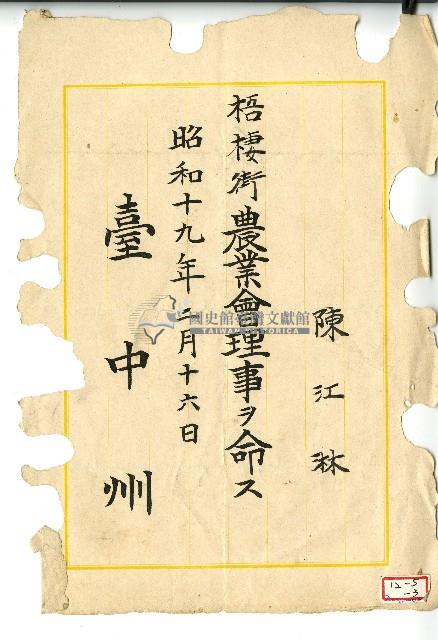 陳江淋
梧棲街農業會理事ヲ命ス
昭和十九年二月十六日
臺中州
國史館臺灣文獻館
TAIWAN HISTORICA
12-5
-3